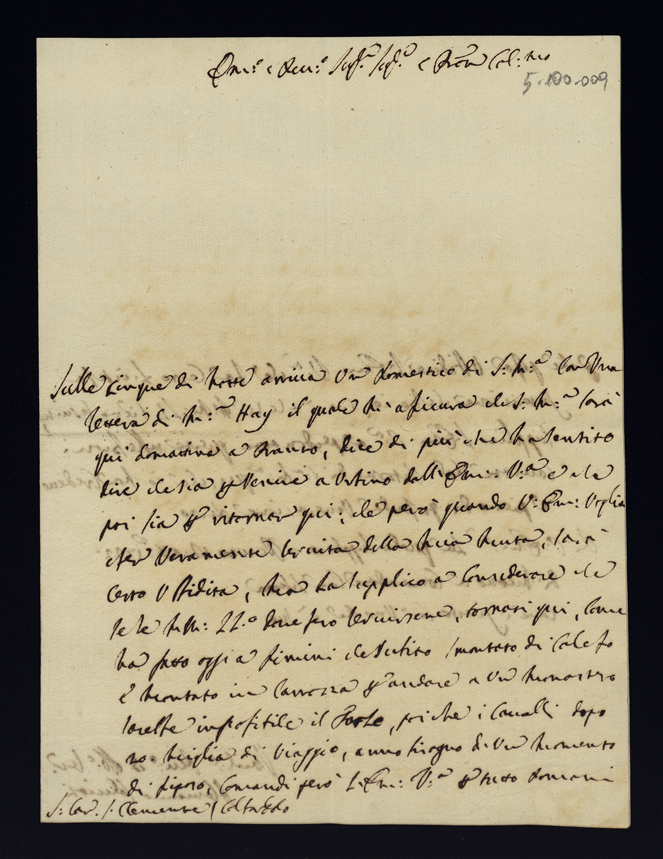 Em.o e Rev.o Sig.r Sig.r e Pron Col.mo
5-100-009
Sulle cinque di notte arriva un domestico di S: M.a con una
lettera di M.r Hay il quale mi assicura che S: M.a sarà
qui domattina a Pranzo, dice di più che ha sentito
dire che sia p Venire a Urbino dall Em. V.a e che
poi sia p ritornar qui; che però quando V: Em: Voglia
esser Veramente servita della mia muta, sarà
certo Ubbidita, ma La supplico a Considerare che
se le MM: LL.o dovessero servirsene, tornati qui, come
ha fatto oggi a Rimini che subito smontato di Calesso
è montato in Carrozza p andare a un Monastero
sarebbe impossibile il farlo, poiche i Cavalli dopo
20. miglia di Viaggio, anno bisogno di un momento
di riposo, comandi però L: Em: V.a p tutto domani
S: Car. S. Clemente